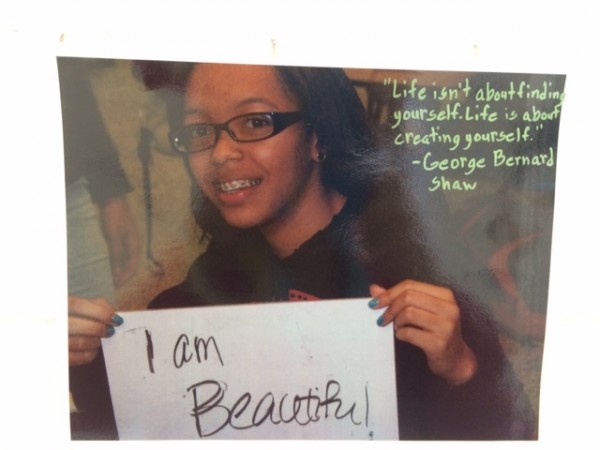 "Life isn't about finding
yourself. Life is about
creating yourself."
-George Bernard
Shaw
I am
Beautiful